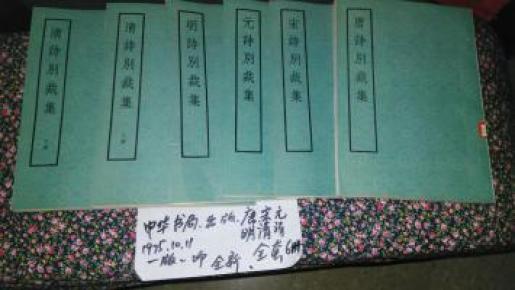 清詩別裁集
下册
清詩別裁集
上册
明詩別裁集
元詩別裁集
宋詩別裁集
唐詩別裁集
中华书局出版 唐宋元
明清诗
1975.10.11
一版一印 全新、全套6册